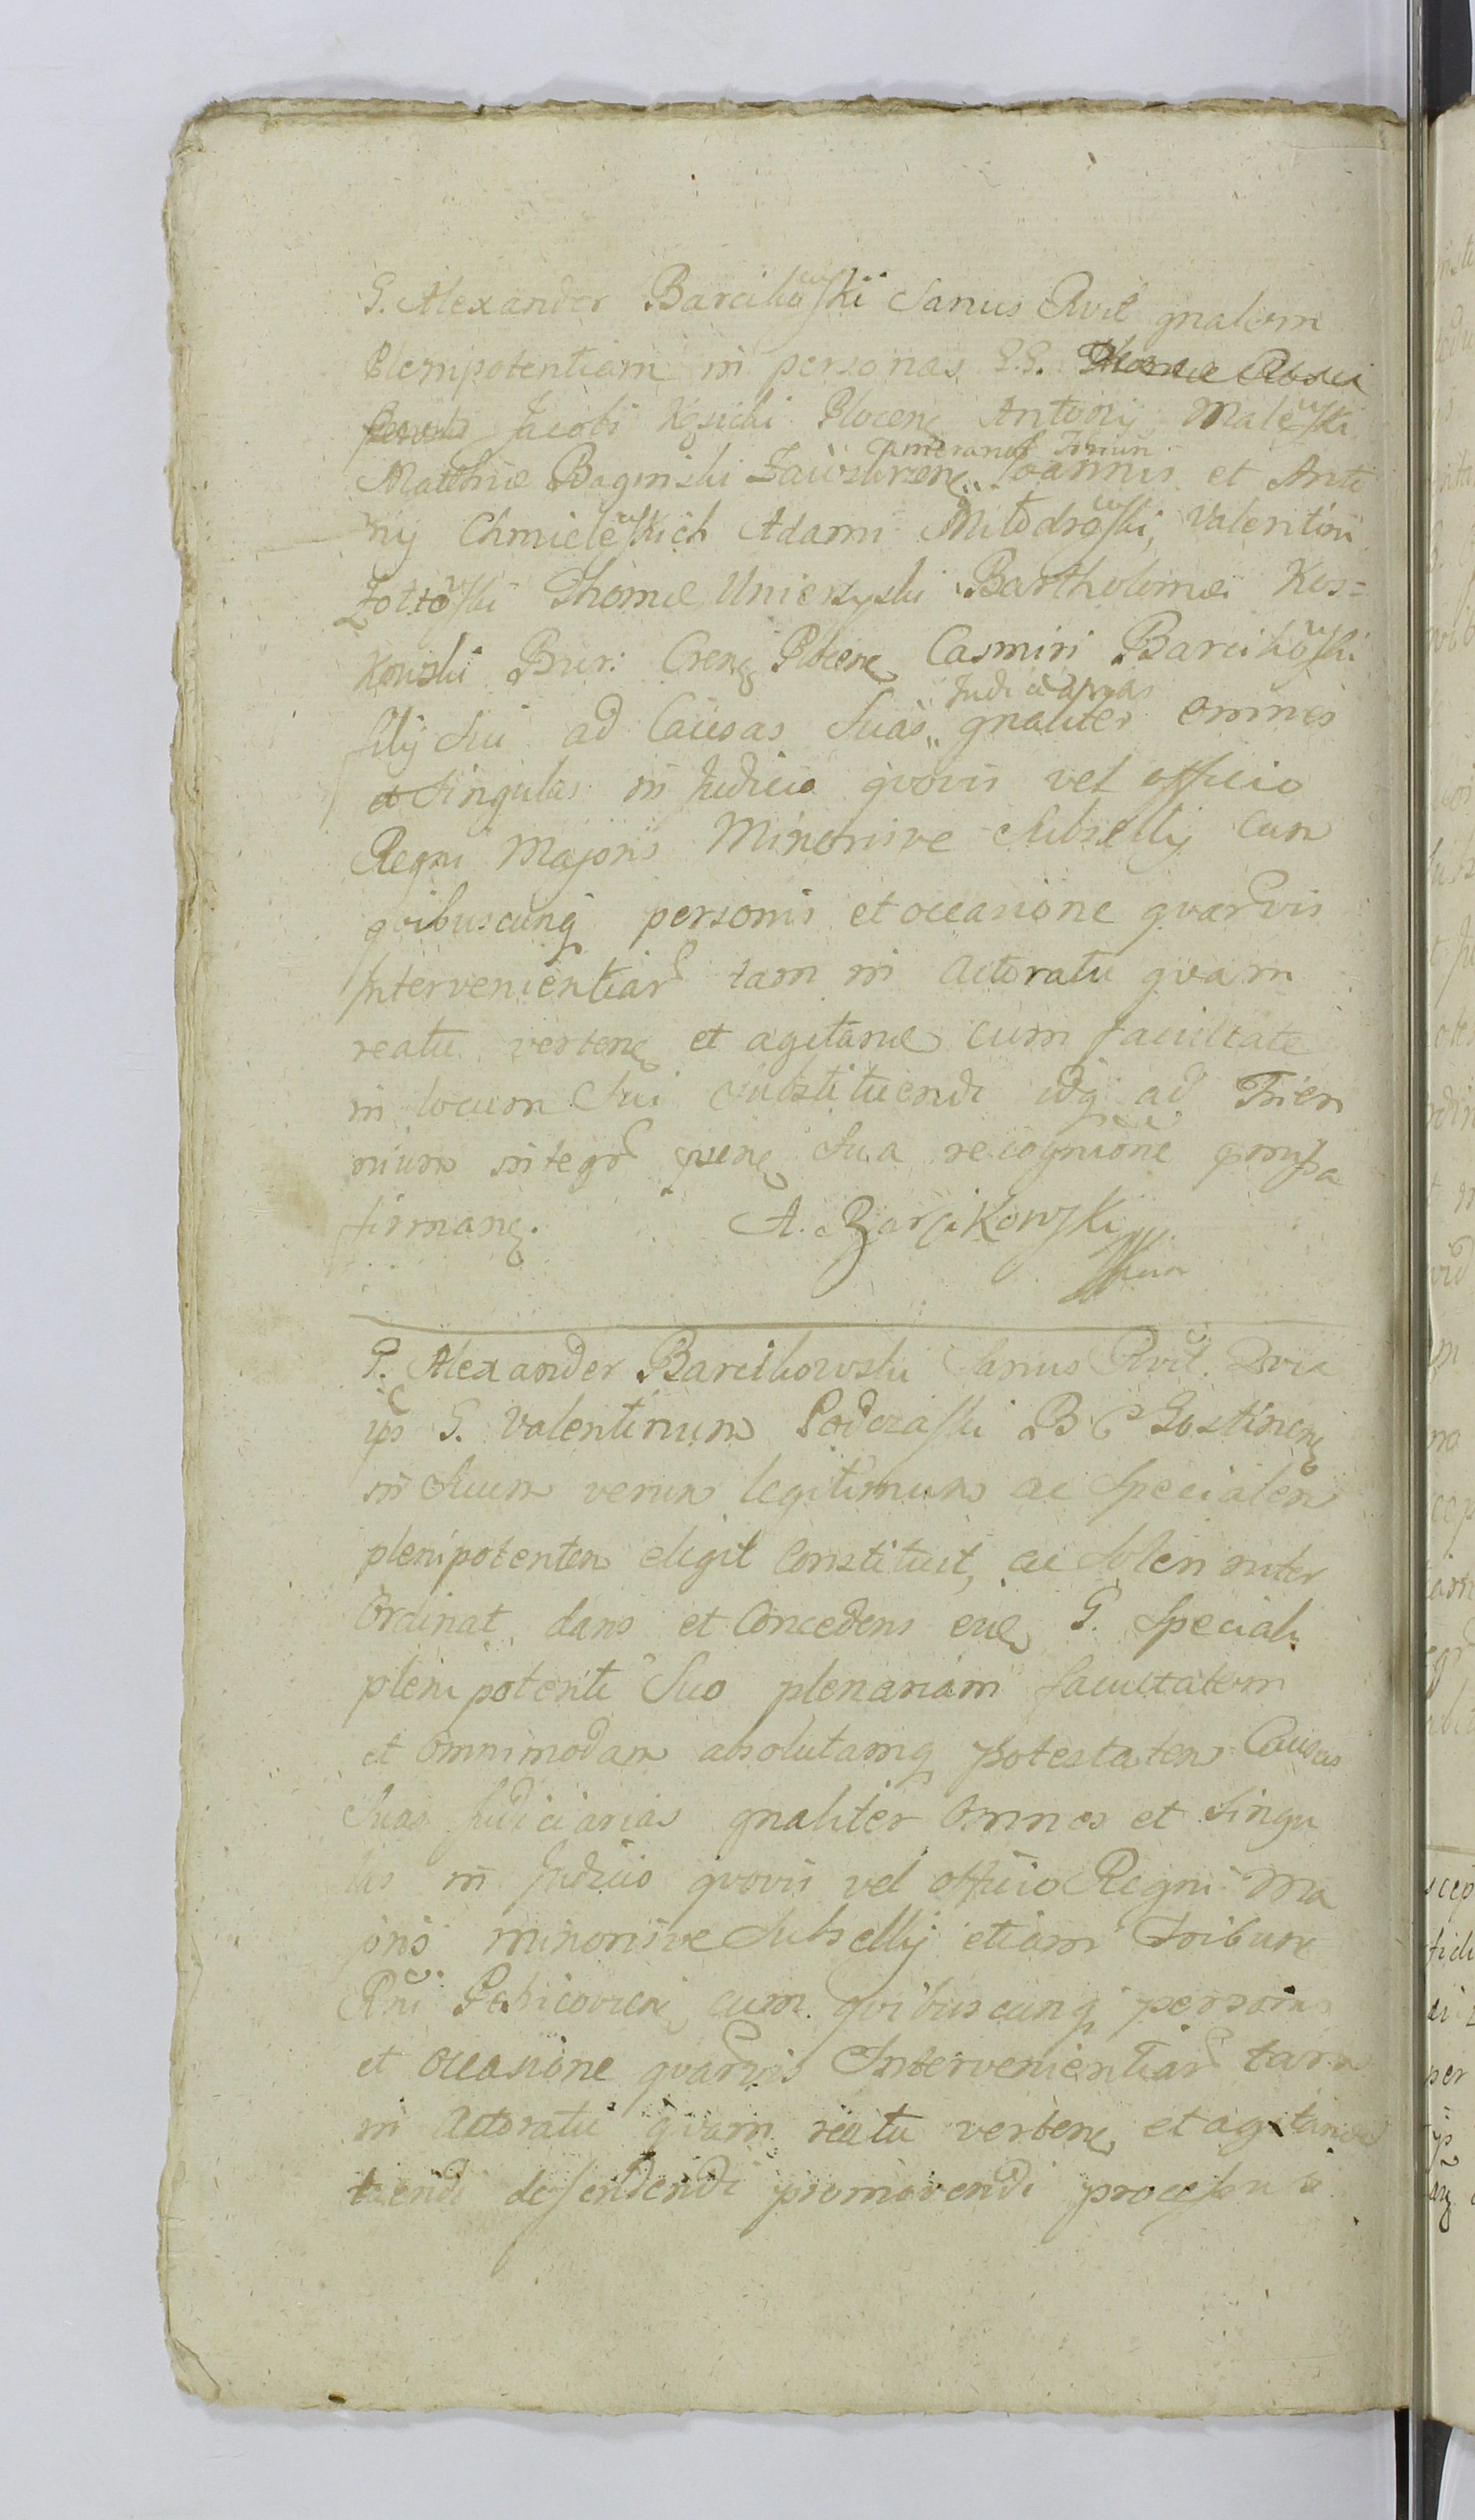 G. Alexander Barcikowski Sanus Rvit gnalem
Plenipotentiam in personas G.G.
Jacobi Kęsicki Plocen Antonij Malewski
Matthiæ Baginski Zawskrzen Joannis et Anto
nij Chmielewskich Adami Miłodrowski, Valentini
Zółtowski Thomæ Unierzyski Bartholomæi Kos=
kowski Bur: Cren Plocen Casmiri Barcikowski
filij sui ad Causas Suas Judiciarias gnaliter omnes
et Singulas in Judicio qvovis vel officio
Regni Majoris Minorisve Subsellij Cum
qvibuscunq personis et occasione qvarvis
Intervenientiar tam in Actoratu qvam
reatu verten et agitand cum facultate
in locum Sui Substituendi idq ad Trien
nium integr præsen Sua recognitione præmissa
firman.
A. Barcikowski
mm
G. Alexander Barcikowski Sanus Rvit. Qvia
ips G. Valentinum Podczaski B C Gostinen
in Suum verum legitimum ac Specialem
plenipotentem eligit Constituit, ac Solenniter
Ordinat dans et Concedens eid G. Speciali
plenipotenti Suo plenariam facultatem
et omnimodam absolutamq potestatem Causas
Suas Judiciarias gnaliter Omnes et Singu
las in Judicio qvovis vel officio Regni Ma
joris minorisve Subsellij etiam Tribun
Rni Petricovien cum qvibuscunq personis
et occasione qvarvis Intervenientiar tam
in Actoratu qvam reatu verten et agitand
tuendi defendendi promovendi processus